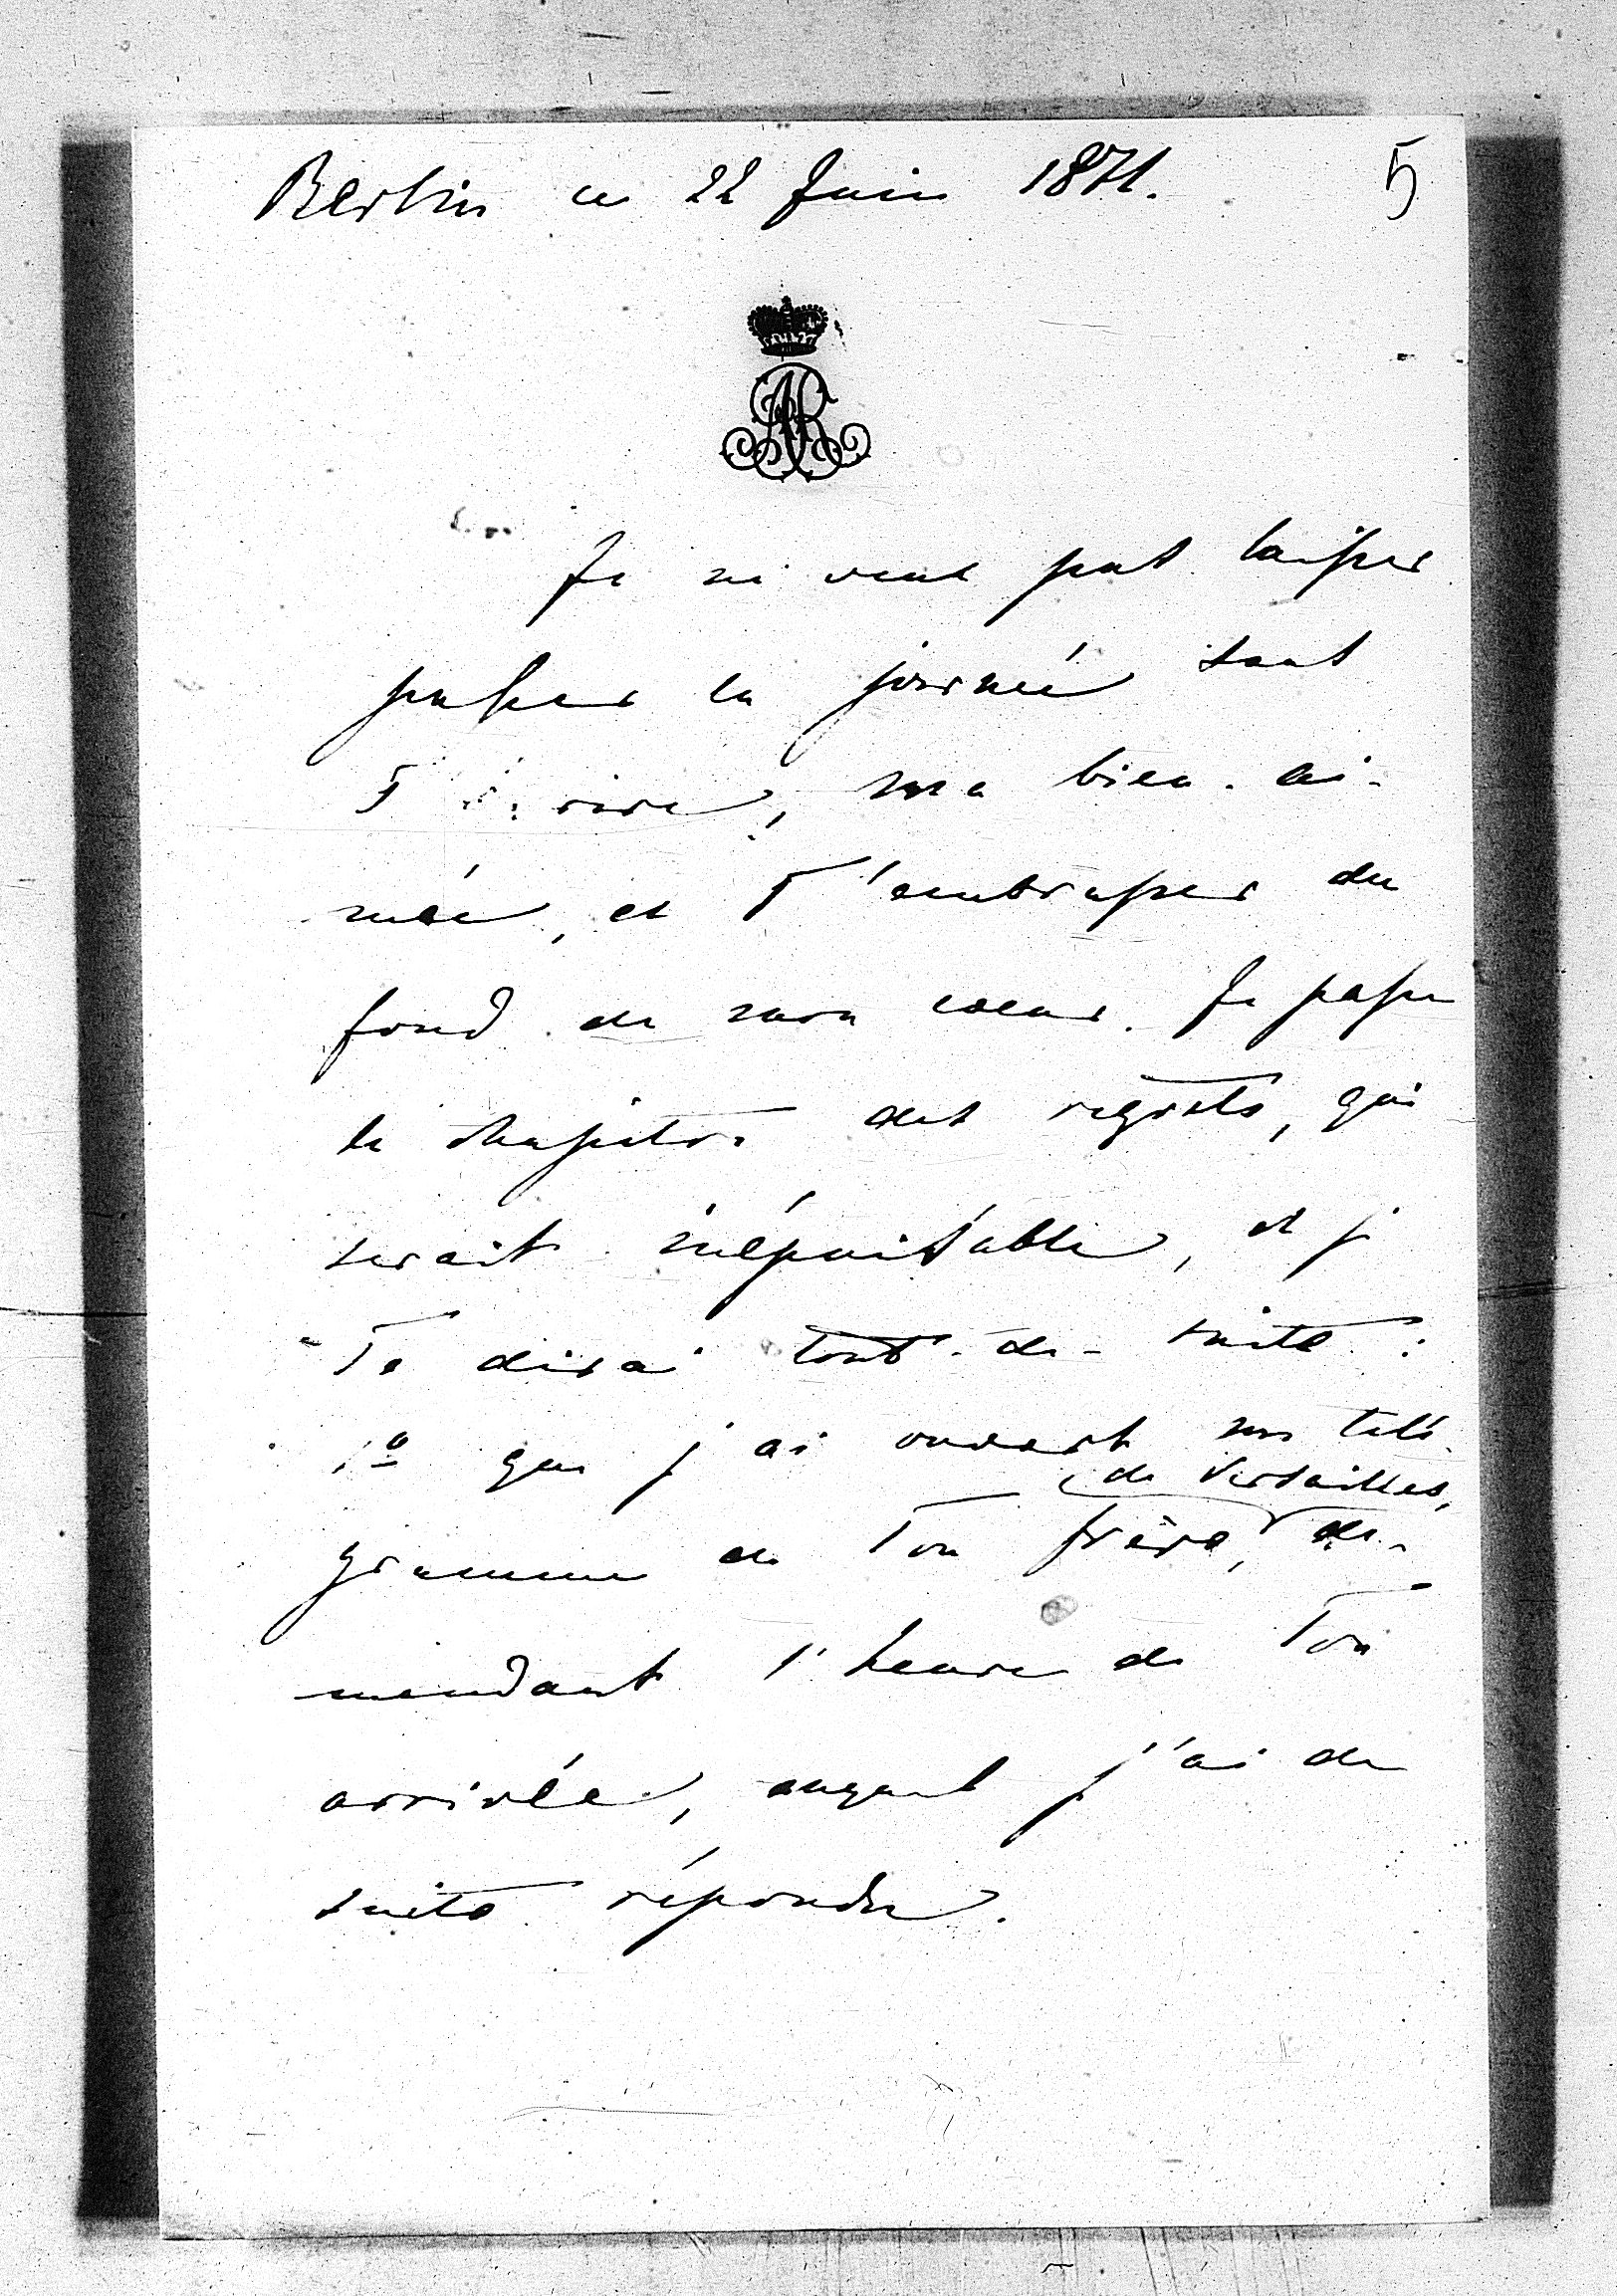 Berlin ce 22 Juin 1871.
5
AR
Je ne veux pas laisser
passer la journée sans
T'écrire, ma bien-ai-
mée, et T'embrasser du
fond de mon coeur. Je passe
le chapitre des regrets, qui
serait inépuisable, et je
Te dirai tout-de-suite:
1º que j'ai ouvert un télé-
de Versailles,
gramme de Ton frère, de-
mandant l'heure de Ton
arrivée, auquel j'ai de
suite répondu.